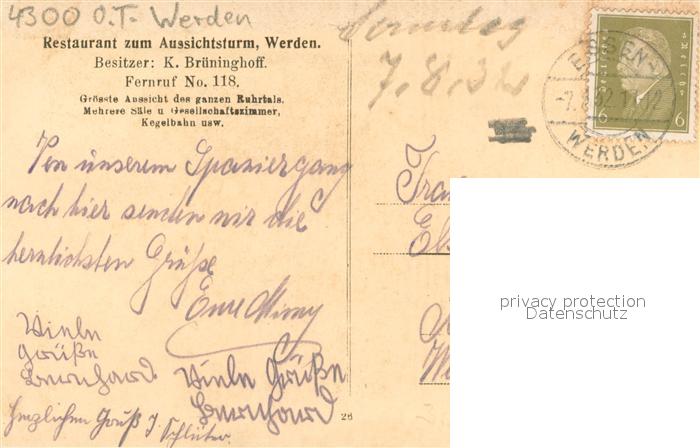 4300 O.T. Werden
Restaurant zum Aussichtsturm, Werden.
Besitzer: K. Brüninghoff.
Fernruf No. 118.
Grösste Aussicht des ganzen Ruhrtals.
Mehrere Säle u Gesellschaftszimmer,
Kegelbahn usw.
Sonntag
7.8.32
ESSEN-
-7.8.32
WERDEN
6 6
Von unserem Spaziergang
nach hier senden wir die
herzlichsten Grüße
Viele
Grüße
Bernhard
Viele Grüße
Bernhard
Herzlichen Gruß J. Schlüter.
26
privacy protection
Datenschutz